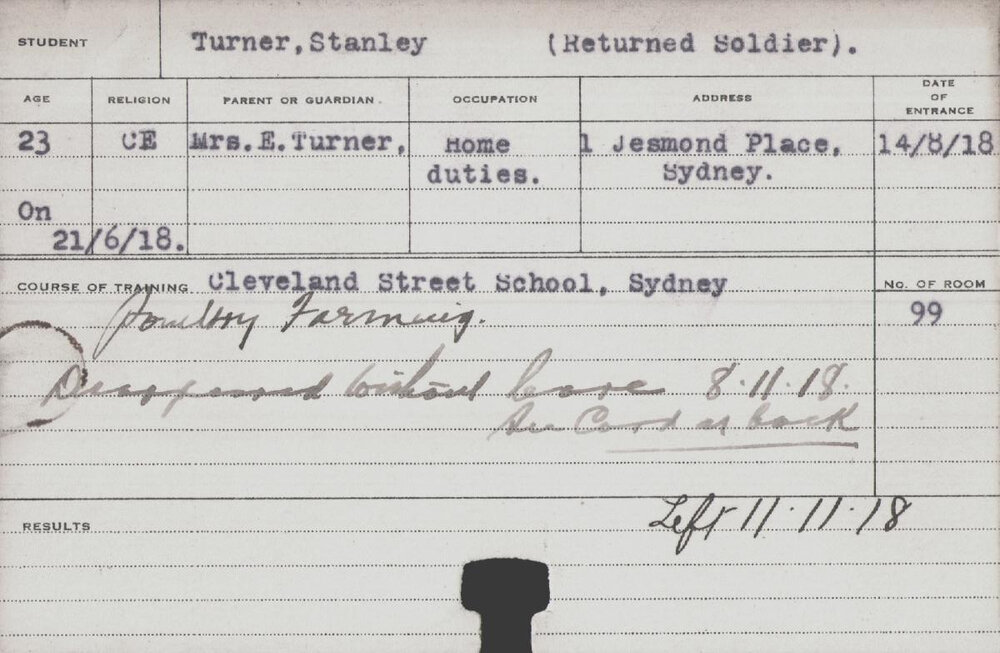 STUDENT Turner, Stanley (Returned Soldier).
AGE RELIGION PARENT OR GUARDIAN. OCCUPATION ADDRESS DATE OF ENTRANCE
23 CE Mrs.E.Turner, Home 1 Jesmond Place, 14/8/18
duties. Sydney.
On
21/6/18.
COURSE OF TRAINING Cleveland Street School, Sydney No. OF ROOM
Poultry Farming. 99
Disappeared without leave 8.11.18.
See Card at back
Left 11.11.18
RESULTS